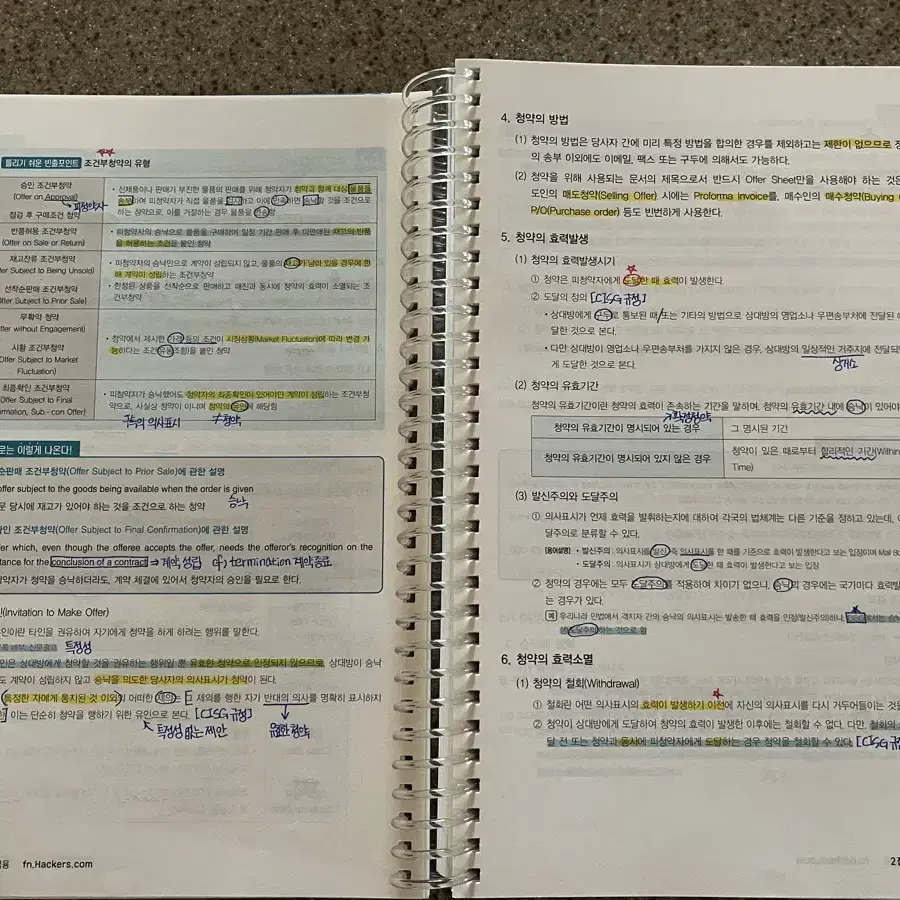 틀리기 쉬운 빈출포인트 조건부청약의 유형
승인 조건부청약
(Offer on Approval)
피청약자
점검 후 구매조건 청약
• 신제품이나 판매가 부진한 물품의 판매를 위해 청약자가 청약과 함께 대상 물품을
송부하여 피청약자가 직접 물품을 하고 이에 만족하면 승낙할 것을 조건으로
하는 청약으로, 이를 거절하는 경우 물품을 반송함
반품허용 조건부청약
(Offer on Sale or Return)
• 피청약자의 승낙으로 물품을 구매하여 일정 기간 판매 후 미판매된 재고의 반품
을 허용하는 조건을 붙인 청약
재고잔류 조건부청약
er Subject to Being Unsold)
선착순판매 조건부청약
fer Subject to Prior Sale)
• 피청약자의 승낙만으로 계약이 성립되지 않고, 물품의 재고가 남아 있을 경우에 한
해 계약이 성립하는 조건부청약
• 한정된 상품을 선착순으로 판매하고 매진과 동시에 청약의 효력이 소멸되는 조
건부청약
무확약 청약
ffer without Engagement)
시황 조건부청약
Offer Subject to Market
Fluctuation)
• 청약에서 제시한 가격 등의 조건이 시장상황(Market Fluctuation)에 따라 변경 가
능하다는 조건(유동조항)을 붙인 청약
최종확인 조건부청약
Offer Subject to Final
rmation, Sub - con Offer)
• 피청약자가 승낙했어도 청약자의 최종확인이 있어야만 계약이 성립하는 조건부청
약으로, 사실상 청약이 아니며 청약의 유인에 해당함
구속의 의사표시 ≠청약
는 이렇게 나온다!
순판매 조건부청약(Offer Subject to Prior Sale)에 관한 설명
offer subject to the goods being available when the order is given
문 당시에 재고가 있어야 하는 것을 조건으로 하는 청약 승낙
확인 조건부청약(Offer Subject to Final Confirmation)에 관한 설명
fer which, even though the offeree accepts the offer, needs the offeror's recognition on the
tance for the conclusion of a contract → 계약성립 termination 계약종료
약자가 청약을 승낙하더라도, 계약 체결에 있어서 청약자의 승인을 필요로 한다.
(Invitation to Make Offer)
인이란 타인을 권유하여 자기에게 청약을 하게 하려는 행위를 말한다.
특정성
인은 상대방에게 청약할 것을 권유하는 행위일 뿐 유효한 청약으로 인정되지 않으므로 상대방이 승낙
도 계약이 성립하지 않고 승낙을 의도한 당사자의 의사표시가 청약이 된다.
특정한 자에게 통지된 것 이외 어떠한 제의는 [ 제의를 행한 자가 반대의 의사를 명확히 표시하지
이는 단순히 청약을 행하기 위한 유인으로 본다. [CISG 규정]
특정성 없는 제안 유효한 청약
fn.Hackers.com
4. 청약의 방법
(1) 청약의 방법은 당사자 간에 미리 특정 방법을 합의한 경우를 제외하고는 제한이 없으므로
의 송부 이외에도 이메일, 팩스 또는 구두에 의해서도 가능하다.
(2) 청약을 위해 사용되는 문서의 제목으로서 반드시 Offer Sheet만을 사용해야 하는 것은
도인의 매도청약(Selling Offer) 시에는 Proforma Invoice를, 매수인의 매수청약(Buying
P/O(Purchase order) 등도 빈번하게 사용한다.
5. 청약의 효력발생
(1) 청약의 효력발생시기
① 청약은 피청약자에게 도달한 때 효력이 발생한다.
② 도달의 정의 [CISG 규정]
• 상대방에게 구두로 통보된 때/또는 기타의 방법으로 상대방의 영업소나 우편송부처에 전달된 때
달한 것으로 본다.
• 다만 상대방이 영업소나 우편송부처를 가지지 않은 경우, 상대방의 일상적인 거주지에 전달되
게 도달한 것으로 본다.
(2) 청약의 유효기간
청약의 유효기간이란 청약의 효력이 존속하는 기간을 말하며, 청약의 유효기간 내에 승낙이 있어야
확정청약
청약의 유효기간이 명시되어 있는 경우 그 명시된 기간
청약의 유효기간이 명시되어 있지 않은 경우 청약이 있은 때로부터 합리적인 기간(Within
Time)
(3) 발신주의와 도달주의
① 의사표시가 언제 효력을 발휘하는지에 대하여 각국의 법체계는 다른 기준을 정하고 있는데,
달주의로 분류할 수 있다.
[용어설명] • 발신주의 : 의사표시를 발신 즉 의사표시를 한 때를 기준으로 효력이 발생한다고 보는 입장이며 Mail
• 도달주의 : 의사표시가 상대방에게 도달한 때 효력이 발생한다고 보는 입장
② 청약의 경우에는 모두 도달주의를 적용하여 차이가 없으나, 승낙의 경우에는 국가마다 효력발
는 경우가 있다.
예 우리나라 민법에서 격지자 간의 승낙의 의사표시는 발송한 때 효력을 인정(발신주의)하나, 에서는 승낙
도달주의 하는 것으로 함
6. 청약의 효력소멸
(1) 청약의 철회(Withdrawal)
① 철회란 어떤 의사표시의 효력이 발생하기 이전에 자신의 의사표시를 다시 거두어들이는 것을
② 청약이 상대방에게 도달하여 청약의 효력이 발생한 이후에는 철회할 수 없다. 다만, 철회의
달 전 또는 청약과 동시에 피청약자에게 도달하는 경우 청약을 철회할 수 있다. [CISG 규